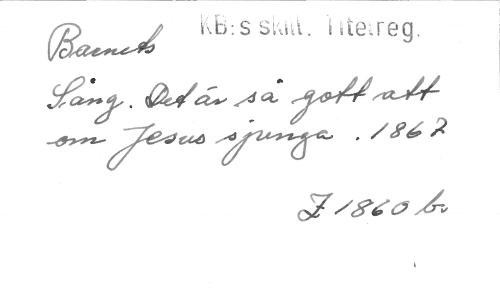 KB:s skill. Titelreg.
Barnets
Sång. Det är så gott att
om Jesus sjunga. 1867
Z 1860 br